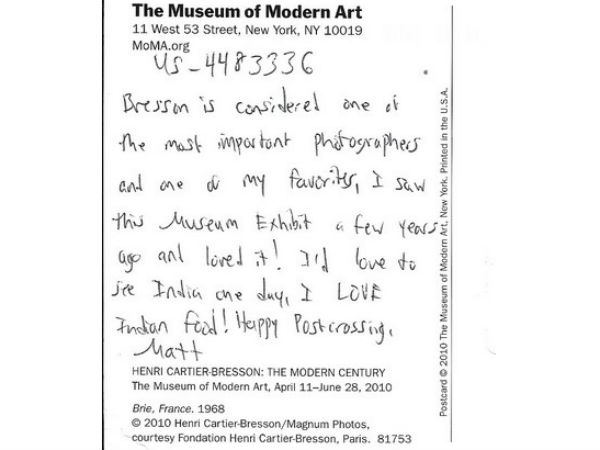 The Museum of Modern Art
11 West 53 Street, New York, NY 10019
MoMA.org
US-4483336
Bresson is considered one of
the most important photographers
and one of my favorites, I saw
this Museum Exhibit a few years
ago and loved it! I'd love to
see India one day, I LOVE
Indian food! Happy Postcrossing,
Matt
HENRI CARTIER-BRESSON: THE MODERN CENTURY
The Museum of Modern Art, April 11–June 28, 2010
Brie, France. 1968
© 2010 Henri Cartier-Bresson/Magnum Photos,
courtesy Fondation Henri Cartier-Bresson, Paris. 81753
Postcard © 2010 The Museum of Modern Art, New York. Printed in the U.S.A.